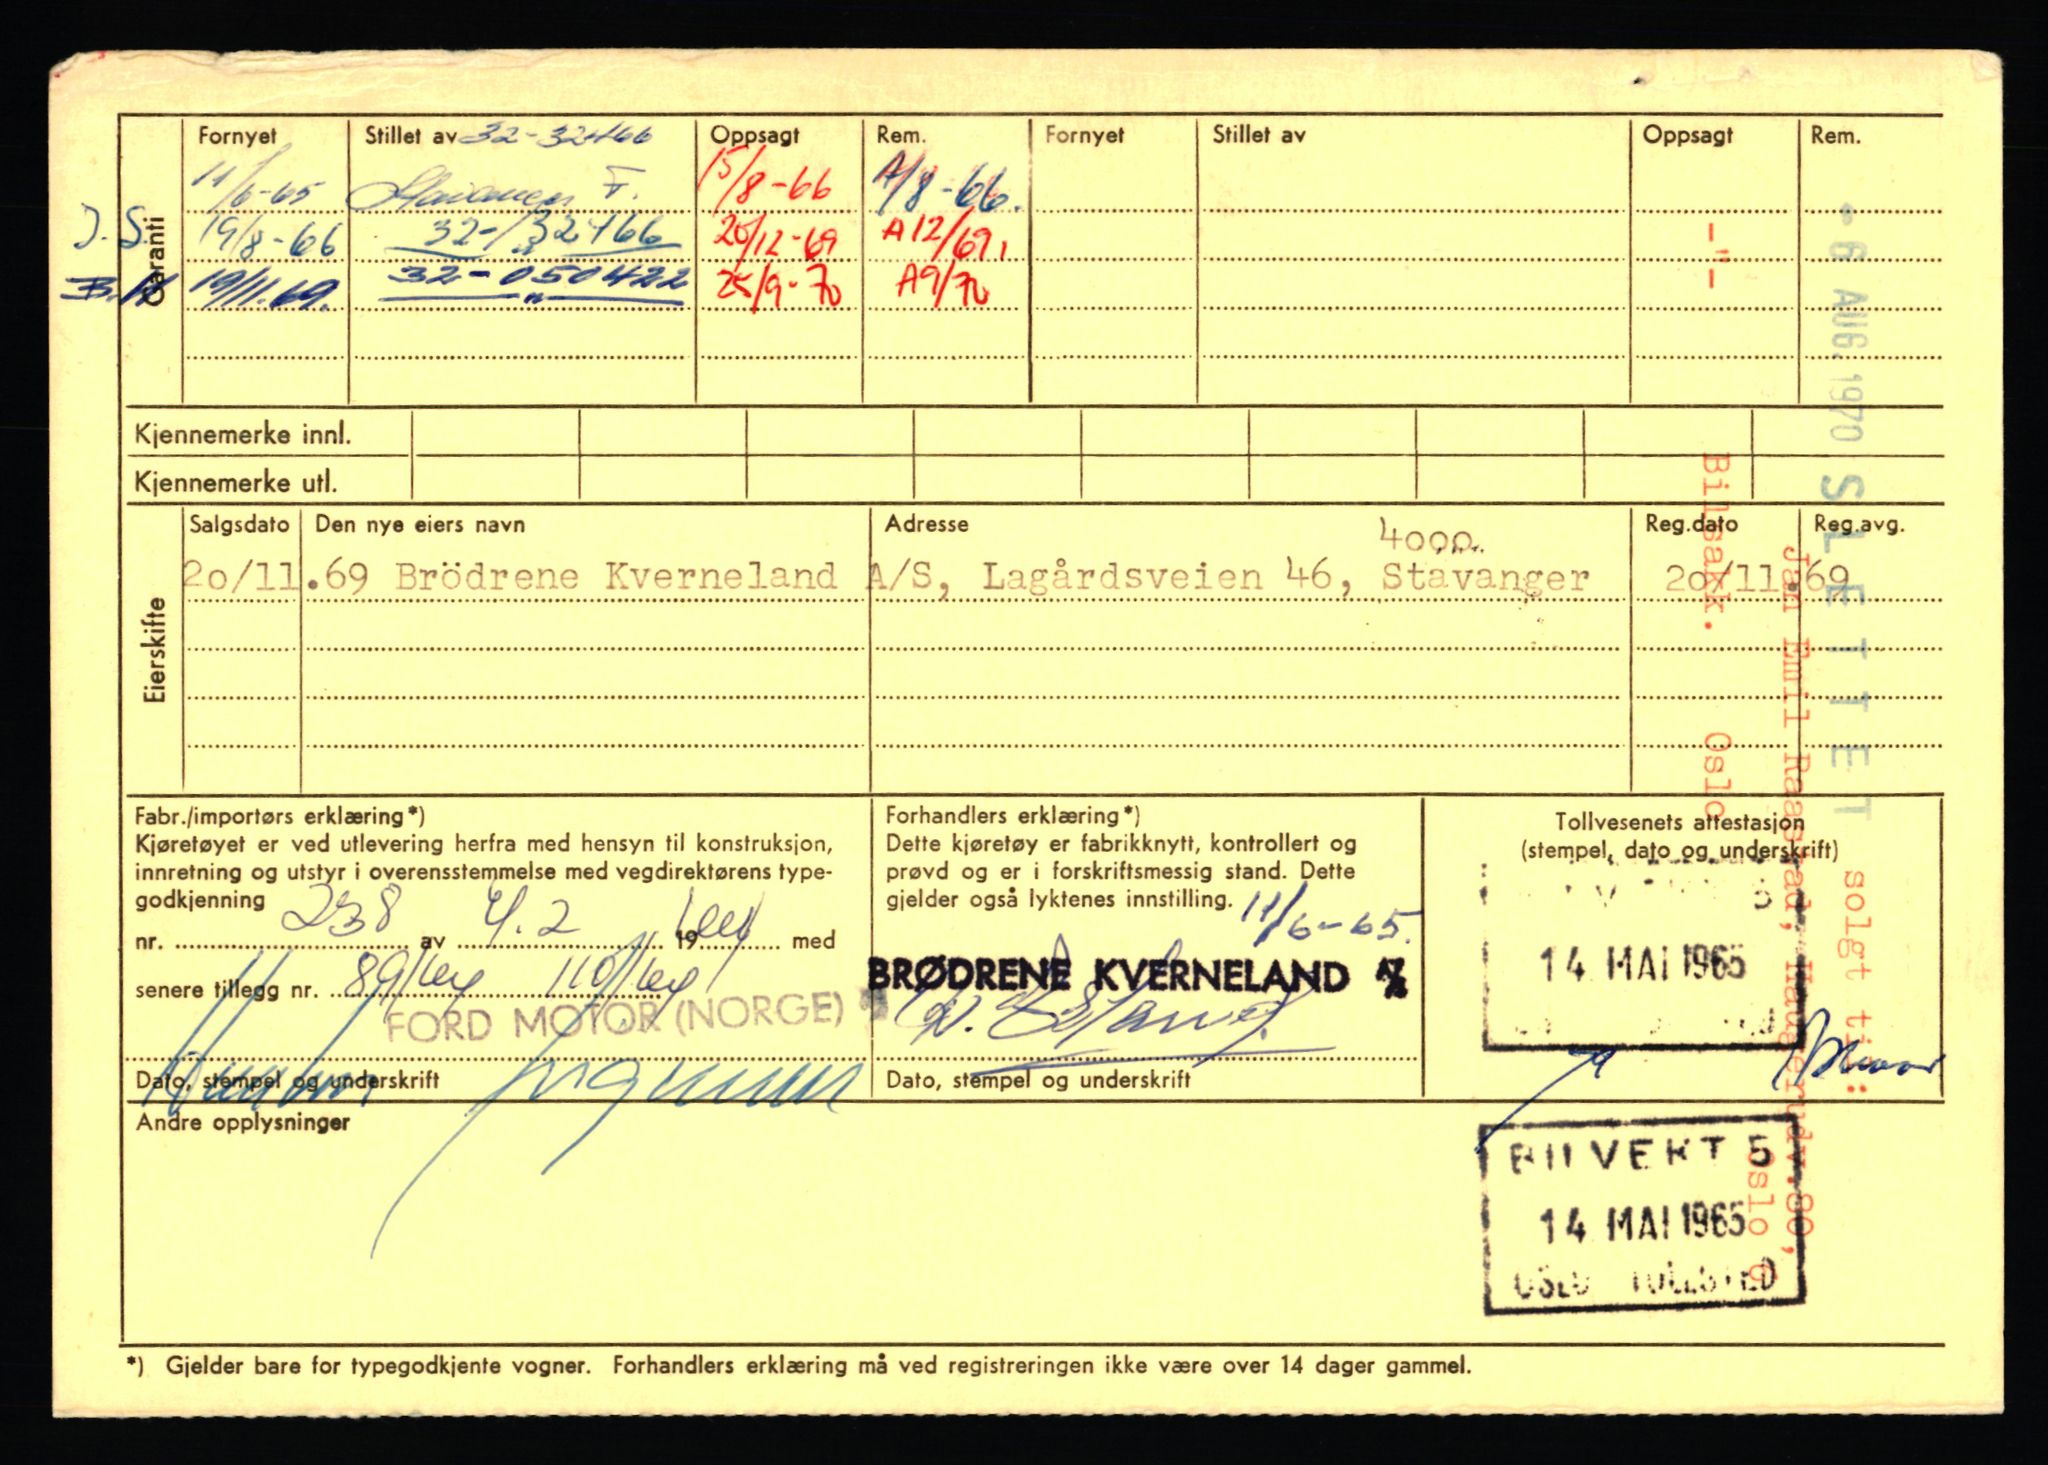 Fornyet Stillet av 32-32466 Oppsagt Rem. Fornyet Stillet av Oppsagt Rem.
11/6-65 F. 15/8-66 A/8-66.
J.S. 19/8-66 32-32466 20/12-69 A12/69, -"-
19/11.69. 32-050422 25/9-70 A9/70
"
Garanti
Kjennemerke innl.
Kjennemerke utl.
Salgsdato Den nye eiers navn Adresse Reg.dato Reg.avg.
4000
20/11.69 Brödrene Kverneland A/S, Lagårdsveien 46, Stavanger 20/11.69
Eierskifte
- 6 AUG. 1970 SLETTET
solgt til:
Jan Emil Raastad, Haugerudv.80,
Oslo 6
Bilsakk. Oslo
Fabr./importørs erklæring*)
Kjøretøyet er ved utlevering herfra med hensyn til konstruksjon,
innretning og utstyr i overensstemmelse med vegdirektørens type-
godkjenning
nr. 238 av 4.2 1964 med
senere tillegg nr. 89/64 110/64
FORD MOTOR (NORGE)
Dato, stempel og underskrift
Forhandlers erklæring*)
Dette kjøretøy er fabrikknytt, kontrollert og
prøvd og er i forskriftsmessig stand. Dette
gjelder også lyktenes innstilling. 11/6-65.
BRØDRENE KVERNELAND A/S
Dato, stempel og underskrift
Tollvesenets attestasjon
(stempel, dato og underskrift)
14 MAI 1965
Andre opplysninger
BILVEKT 5
14 MAI 1965
OSLO TOLLSTED
*) Gjelder bare for typegodkjente vogner. Forhandlers erklæring må ved registreringen ikke være over 14 dager gammel.